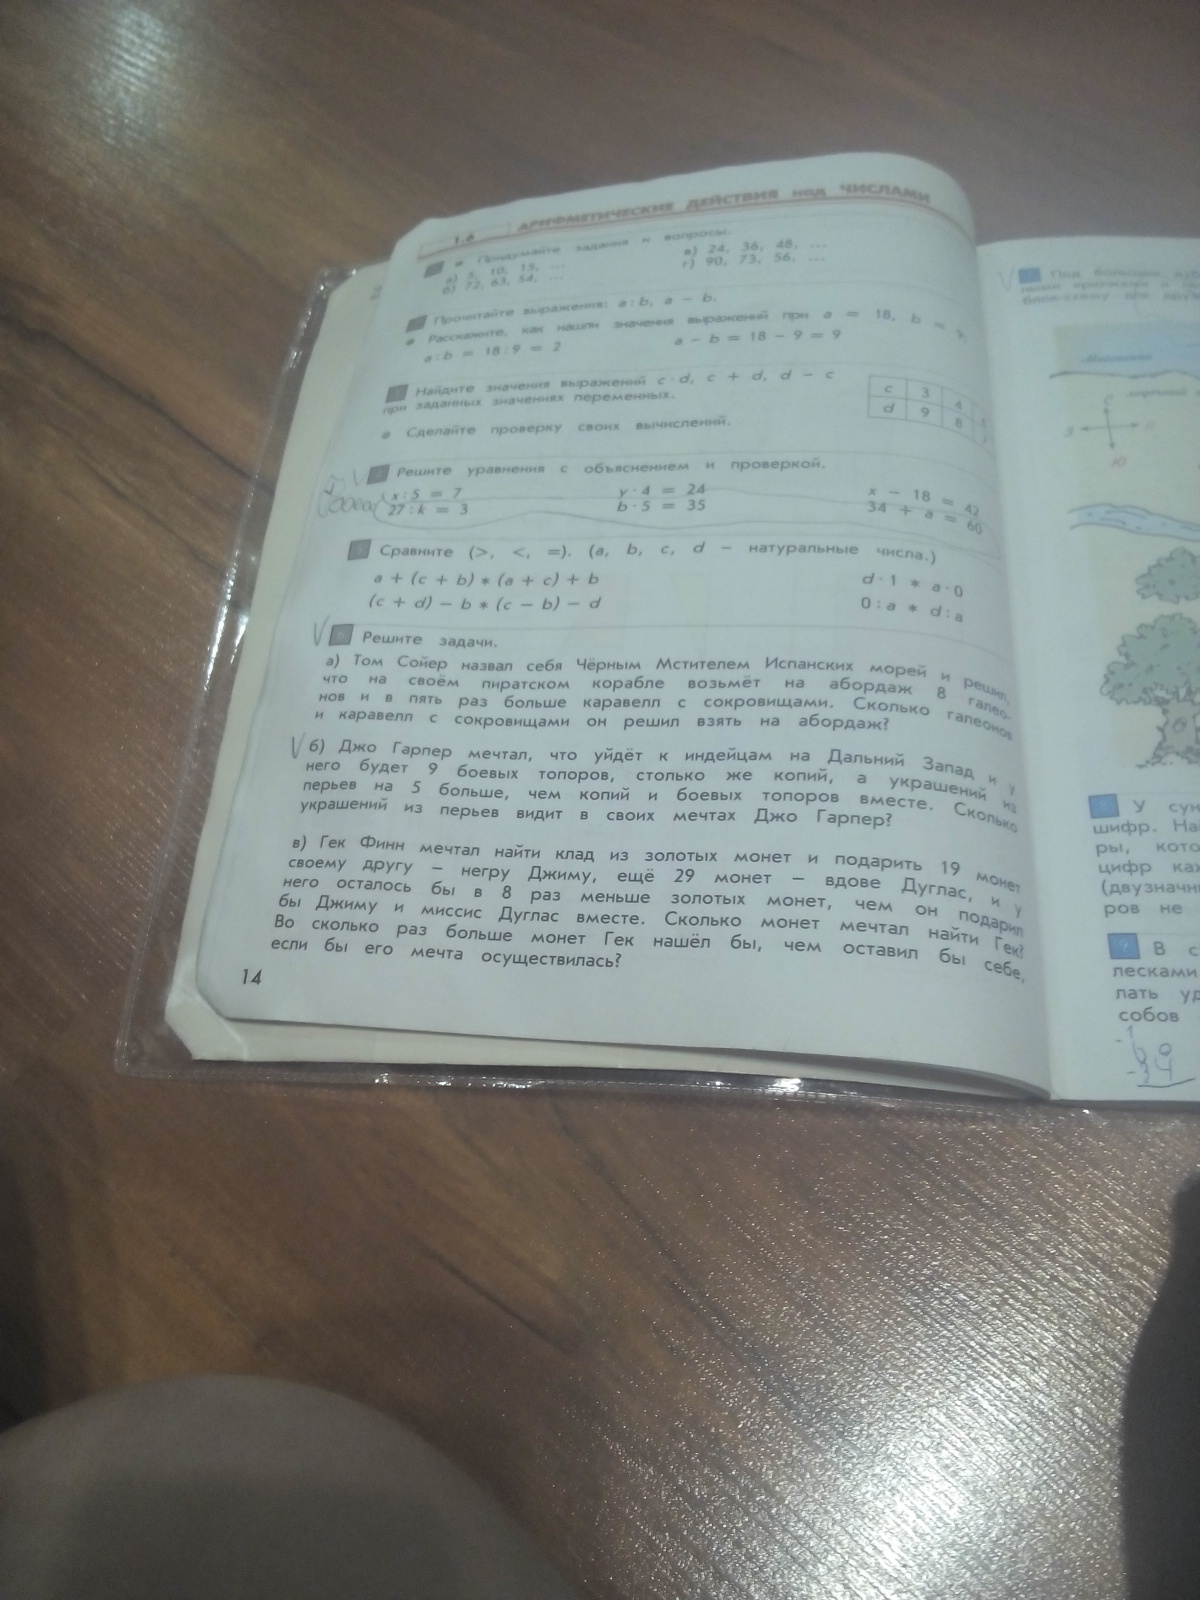 1.6 АРИФМЕТИЧЕСКИЕ ДЕЙСТВИЯ над ЧИСЛАМИ
Придумайте задания и вопросы.
а) 5, 10, 15, ... в) 24, 36, 48, ...
б) 72, 63, 54, ... г) 90, 73, 56, ...
Прочитайте выражения: a : b, a − b.
Расскажите, как нашли значения выражений при a = 18, b = 9.
a : b = 18 : 9 = 2 a − b = 18 − 9 = 9
Найдите значения выражений c · d, c + d, d − c
при заданных значениях переменных.
c 3 4
d 9 8
Сделайте проверку своих вычислений.
4 Решите уравнения с объяснением и проверкой.
x : 5 = 7 y · 4 = 24 x − 18 = 42
27 : k = 3 b · 5 = 35 34 + a = 60
5 Сравните (>, <, =). (a, b, c, d − натуральные числа.)
a + (c + b) * (a + c) + b d · 1 * a · 0
(c + d) − b * (c − b) − d 0 : a * d : a
6 Решите задачи.
а) Том Сойер назвал себя Чёрным Мстителем Испанских морей и решил,
что на своём пиратском корабле возьмёт на абордаж 8 галео-
нов и в пять раз больше каравелл с сокровищами. Сколько галеонов
и каравелл с сокровищами он решил взять на абордаж?
б) Джо Гарпер мечтал, что уйдёт к индейцам на Дальний Запад и у
него будет 9 боевых топоров, столько же копий, а украшений из
перьев на 5 больше, чем копий и боевых топоров вместе. Сколько
украшений из перьев видит в своих мечтах Джо Гарпер?
в) Гек Финн мечтал найти клад из золотых монет и подарить 19 монет
своему другу – негру Джиму, ещё 29 монет – вдове Дуглас, и у
него осталось бы в 8 раз меньше золотых монет, чем он подарил
бы Джиму и миссис Дуглас вместе. Сколько монет мечтал найти Гек?
Во сколько раз больше монет Гек нашёл бы, чем оставил бы себе,
если бы его мечта осуществилась?
14
Под
блок-схему для
С
З
Ю
8 У
шифр.
ры,
цифр
ров не
9 В
лесками
собов